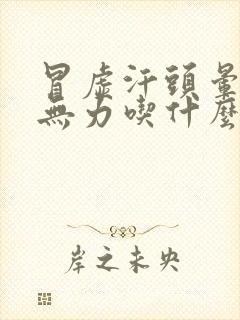 冒虛汗頭暈
無力喫什麼
岸之未央